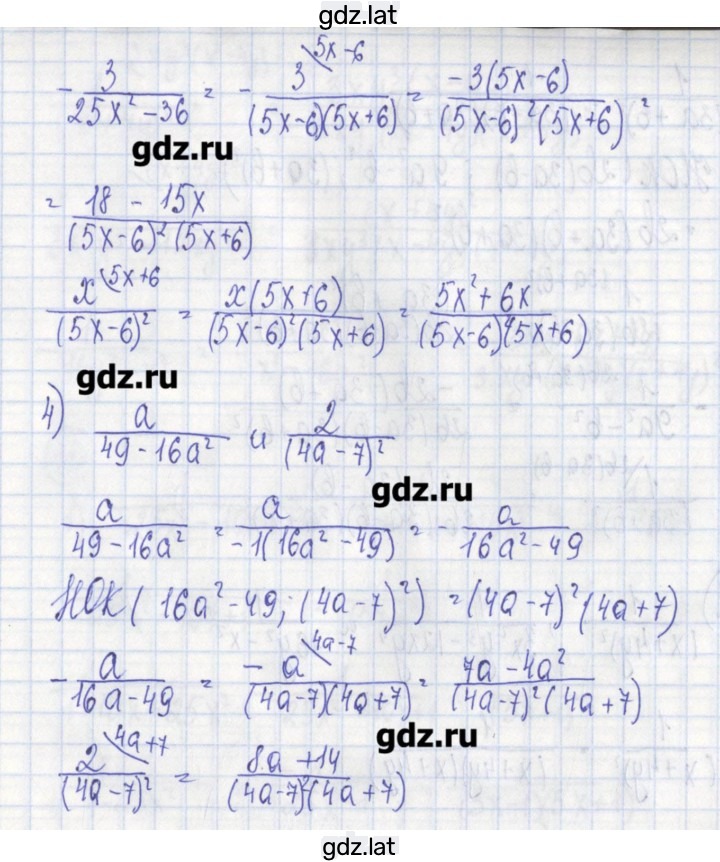 gdz.lat
- 3/(25x² - 36) = - 3^(5x-6)/((5x-6)(5x+6)) = -3(5x-6)/((5x-6)²(5x+6)) =
gdz.ru
= (18 - 15x)/((5x-6)²(5x+6))
x^(5x+6)/(5x-6)² = x(5x+6)/((5x-6)²(5x+6)) = (5x²+6x)/((5x-6)²(5x+6))
gdz.ru
4) a/(49-16a²) и 2/(4a-7)²
gdz.ru
a/(49-16a²) = a/(-1(16a²-49)) = - a/(16a²-49)
НОК(16a²-49; (4a-7)²) = (4a-7)²(4a+7)
- a/(16a-49) = -a^(4a-7)/((4a-7)(4a+7)) = (7a-4a²)/((4a-7)²(4a+7))
gdz.ru
2^(4a+7)/(4a-7)² = (8a+14)/((4a-7)²(4a+7))
gdz.lat